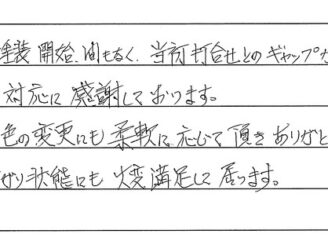 塗装開始、間もなく、当初打合せとのギャップが
対応に感謝しております。
色の変更にも柔軟に応じて頂きありがと
がり状態にも大変満足して居ります。